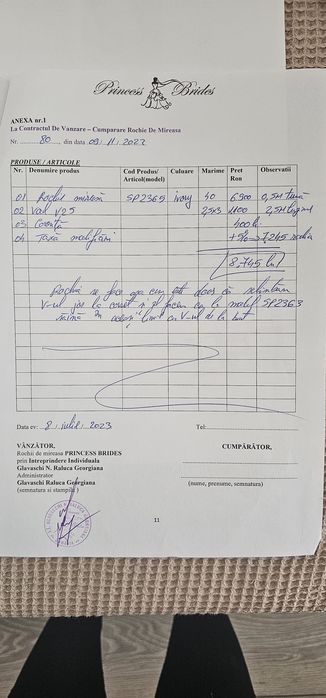 Princess Brides
ANEXA nr.1
La Contractul De Vanzare – Cumparare Rochie De Mireasa
Nr. 80 , din data 09.11.2022
PRODUSE / ARTICOLE
Nr. Denumire produs Cod Produs/ Articol(model) Culoare Marime Pret Ron Observatii
01 Rochie mireasă SP2365 ivory 40 6900
02 Voal V25 2,5x3 1100
03 400 lei
04 Taxă +5% → 7,245
8.745 lei
Rochia se face așa cum este doar că
V-ul jos la corset și îl facem ca la modelul SP2363
Data ev: 8 iulie 2023 Tel:
VÂNZĂTOR, CUMPĂRĂTOR,
Rochii de mireasa PRINCESS BRIDES
prin Intreprindere Individuala
Glavaschi N. Raluca Georgiana
Administrator
Glavaschi Raluca Georgiana
(semnatura si stampila) (nume, prenume, semnatura)
11